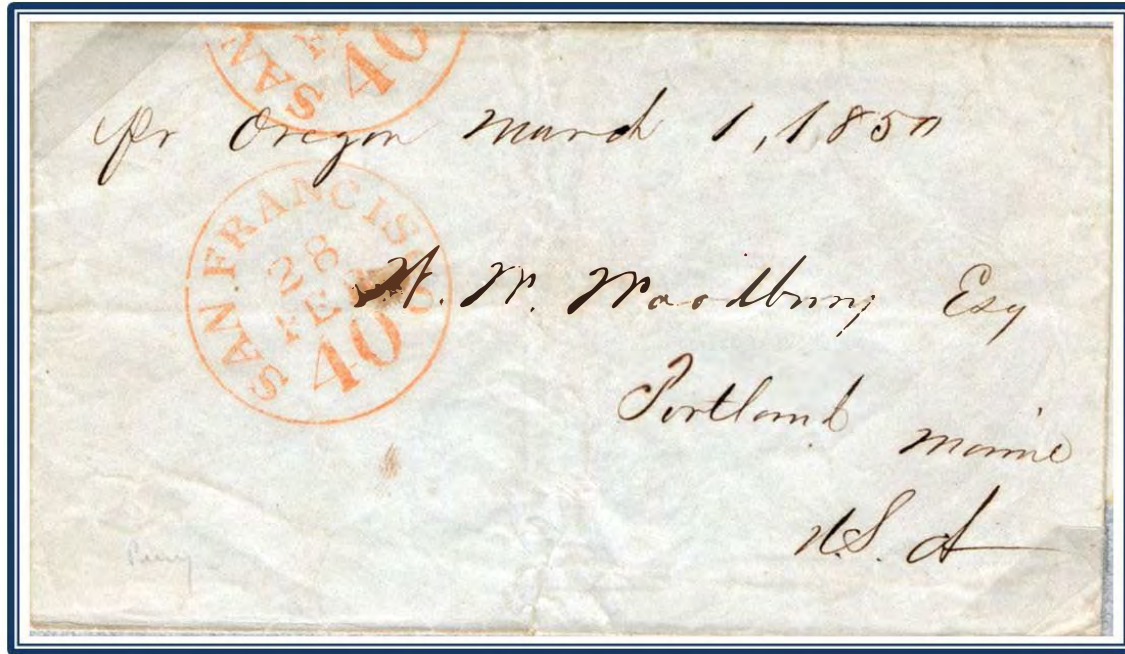 SAN F 40
Pr Oregon March 1, 1850
SAN FRANCISCO
28
FEB
40
W. Woodbury Esq
Portland
Maine
U.S. A